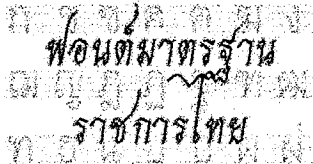 ฟอนต์มาตรฐาน
ราชการไทย